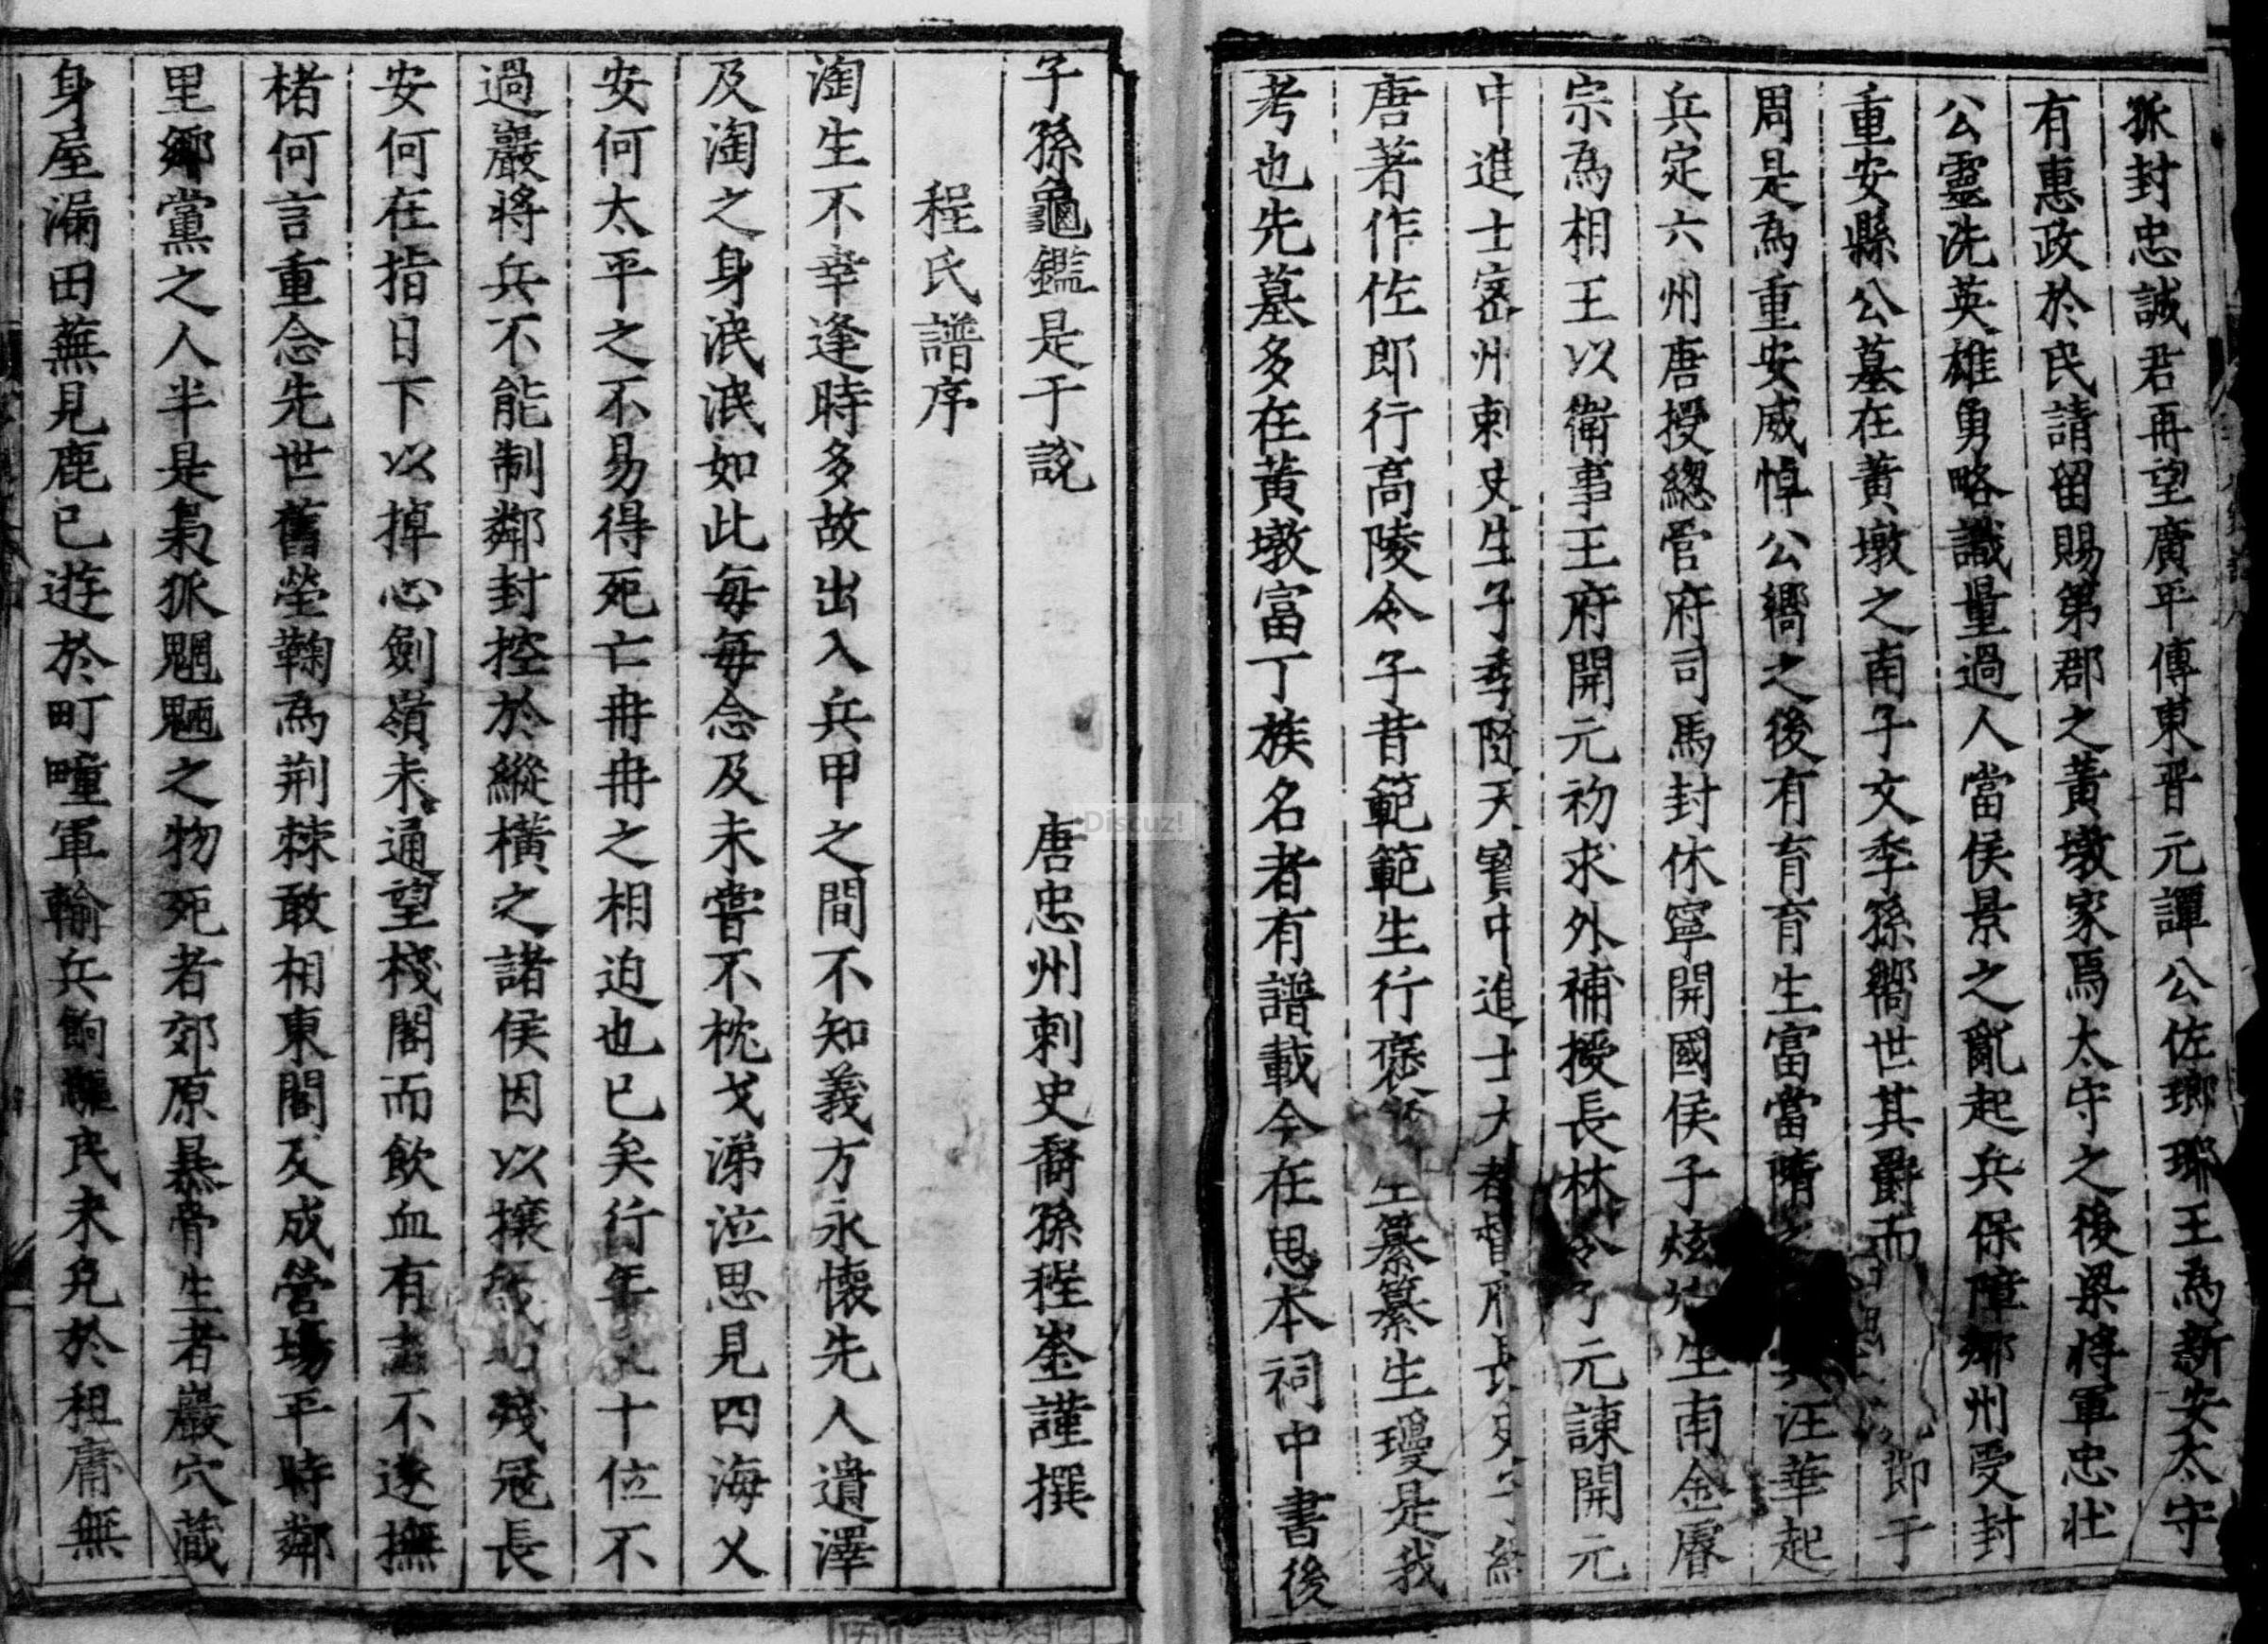 孤封忠誠君再望廣平傳東晉元譚公佐瑯琊王為新安太守
有惠政於民請留賜第郡之黃墩家焉太守之後梁將軍忠壯
公靈洗英雄勇略識量過人當侯景之亂起兵保障鄉州受封
重安縣公墓在黃墩之南子文季孫嚮世其爵而 節于
周是為重安威悼公嚮之後有育育生富富當隋 汪華起
兵定六州唐授總管府司馬封休寧開國侯子炫 生南金睿
宗為相王以衛事王府開元初求外補授長林令子元諫開元
中進士密州刺史生子季隨天寶中進士大都督府長史
唐著作佐郎行高陵令子昔範範生行褒 生纂纂生璦是我
考也先墓多在黃墩富丁族名者有譜載今在思本祠中書後
子孫龜鑑是于說 唐忠州刺史裔孫程崟謹撰
程氏譜序
淘生不幸逢時多故出入兵甲之間不知義方永懷先人遺澤
及淘之身泯泯如此每每念及未嘗不枕戈涕泣思見四海乂
安何太平之不易得死亡冉冉之相迫也已矣行年 十位不
過巖將兵不能制鄰封控於縱橫之諸侯因以攘 殘冦長
安何在指日下以掉心劍嶺未通望棧閣而飲血有志不遂撫
楮何言重念先世舊塋鞠為荊棘敢相東閣反成營場平時鄰
里鄉黨之人半是梟狐魍魎之物死者郊原暴骨生者巖穴藏
身屋漏田蕪見鹿已遊於町疃軍輸兵餉 民未免於租庸無
Discuz!